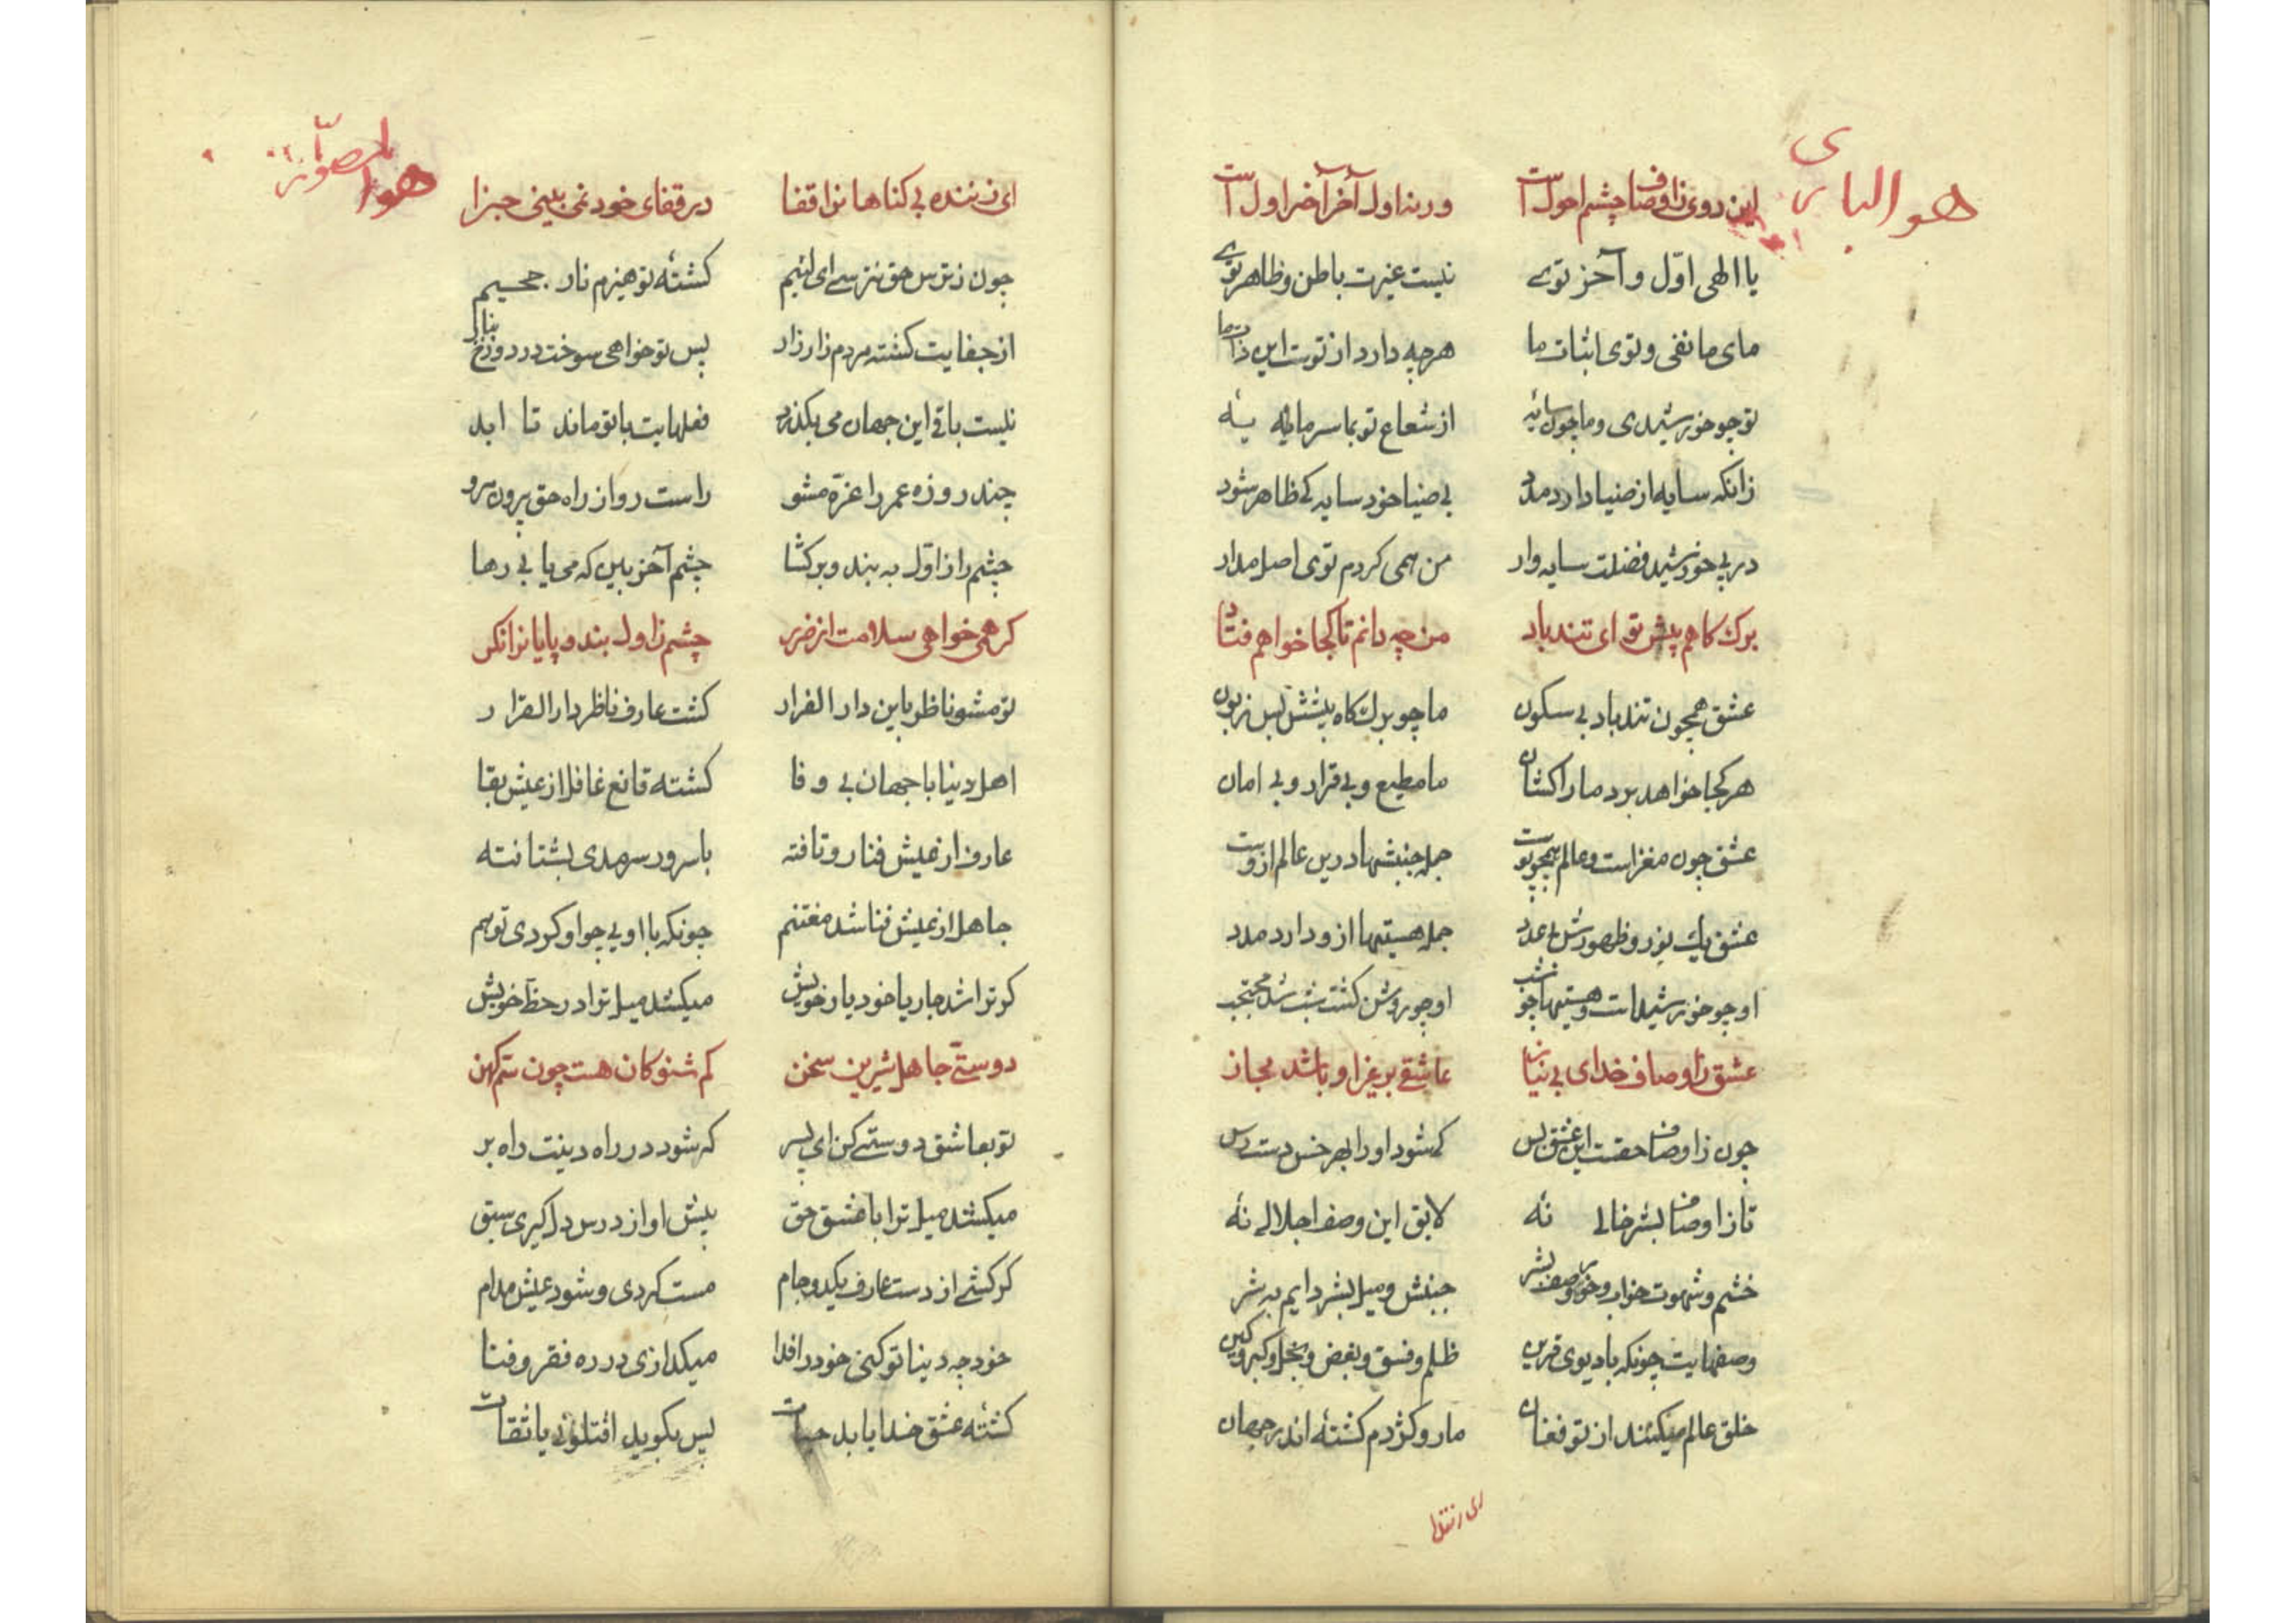 هو الباری
این دوی ز اوصاف چشم احول است ورنه اول آخر آخر اول است
یا الهی اوّل و آخر توی نیست غیرت باطن و ظاهر توی
مای ما نفی و توی اثبات ما هرچه دارد از توست این ذات ما
تو چو خورشیدی و ما چون سایهٔ از شعاع تو بما سرمایهٔ
زانکه سایه از ضیا دارد مدد بی ضیا خود سایه کی ظاهر شود
در پی خورشید فضلت سایه وار من همی کردم توی اصل مدار
برک کاهم پیش تو ای تندباد من چه دانم تا کجا خواهم فتاد
عشق همچون تندباد بی سکون ما چو برک کاه پیشش بس زبون
هر کجا خواهد برد ما را کشان ما مطیع و بی قرار و بی امان
عشق چون مغز است و عالم همچو پوست جمله جنبشها درین عالم ازوست
عشق یک نور و ظهورش بی عدد جمله هستیها ازو دارد مدد
او چو خورشید است و هستیها چو شب او چو روشن کشت شب شد محتجب
عشق ز اوصاف خدای بی نیاز عاشقی بر غیر او باشد مجاز
چون ز اوصاف حقست این عشق بس کی شود او را بهر خس دست رس
تا ز اوصاف بشر خالی نهٔ لایق این وصف اجلالی نهٔ
خشم و شهوت خواب و خور وصف بشر جنبش و میل بشر دایم به شر
وصفهایت چونکه با دیوی قرین ظلم و فسق و بغض و بخل و کبر و کین
خلق عالم میکنند از تو فغان مار و کژدم کشتهٔ اندر جهان
ای زننده
هو المصوّر
ای زننده بی کناهانرا قفا در قفای خود نمی بینی جزا
چون ز ترس حق نترسی ای لئیم کشتهٔ تو هیزم نار جحیم
از جفایت کشته مردم زار زار پس تو خواهی سوخت در دوزخ بنار
نیست باقی این جهان می بکذرد فعلهایت با تو ماند تا ابد
چند روزه عمر را غرّه مشو راست رو از راه حق بیرون مرو
چشم را از اوّل به بند و برکشا چشم آخر بین که می یابی رها
کر همی خواهی سلامت از ضرر چشم ز اول بند و پایانرا نکر
تو مشو ناظر باین دار الفرار کشت عارف ناظر دار القرار
اهل دنیا با جهان بی وفا کشته قانع غافل از عیش بقا
عارف از عیش فنا رو تافته با سرور سرمدی بشتافته
جاهل از عیش فنا شد مغتنم چونکه با اویی چو او کردی تو هم
کر ترا شد جار یا خود یار خویش میکشد میل ترا در حظّ خویش
دوستی جاهل شیرین سخن کم شنو کان هست چون سمّ کهن
تو بعاشق دوستی کن ای پسر که شود در راه دینت راه بر
میکشد میل ترا با عشق حق پیش او از درس دل کیری سبق
کر کشی از دست عارف یکدو جام مست کردی و شود عیش مدام
خود چه دینا تو کنی خود را فدا میکدازی در ره فقر و فنا
کشتهٔ عشق خدا یابد حیات پس بکوید اقتلونی یا ثقات